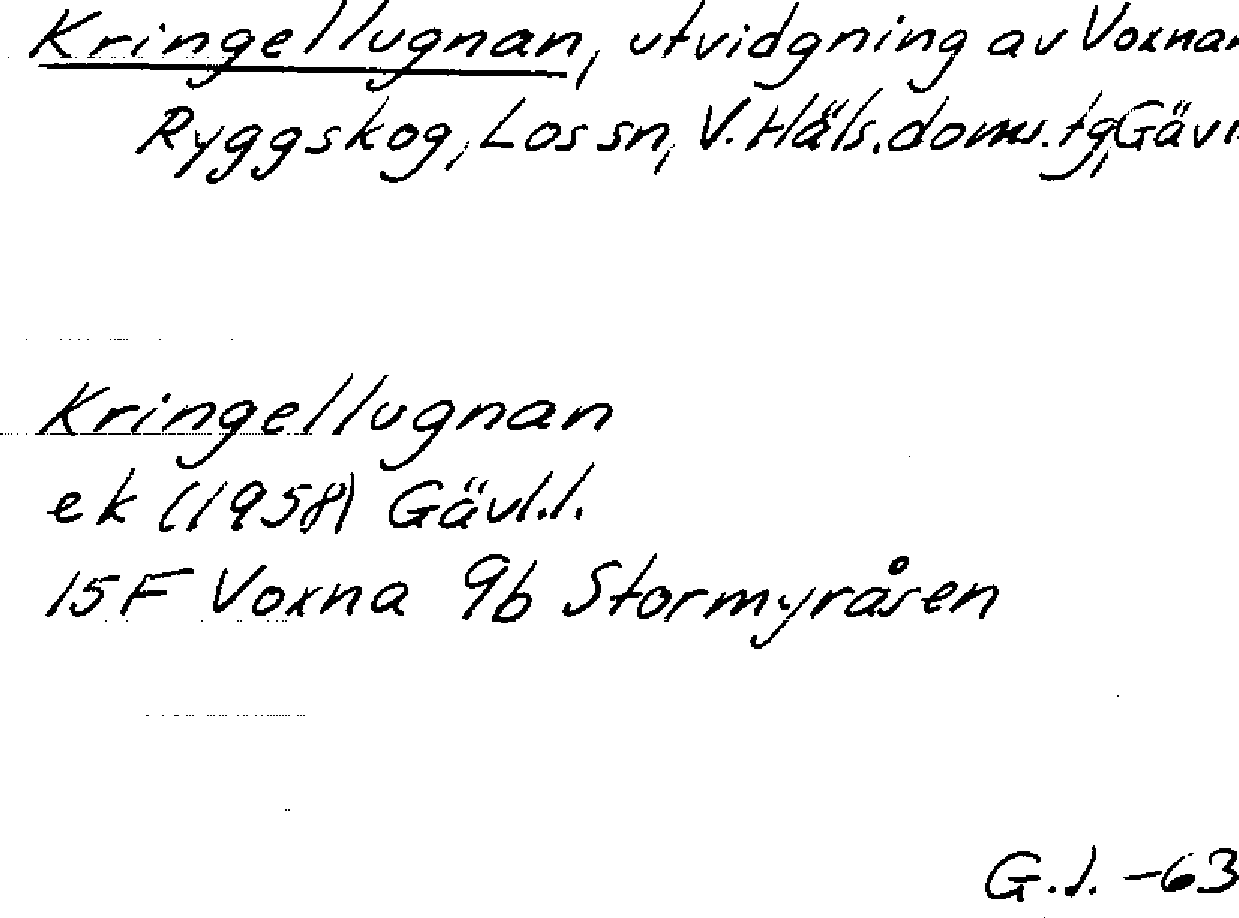 Kringellugnan, utvidgning av Voxnan
Ryggskog, Los sn, V. Häls. doms. tg, Gävl.
Kringellugnan
ek (1958) Gävl.l.
15F Voxna 9b Stormyråsen
G.J. -63